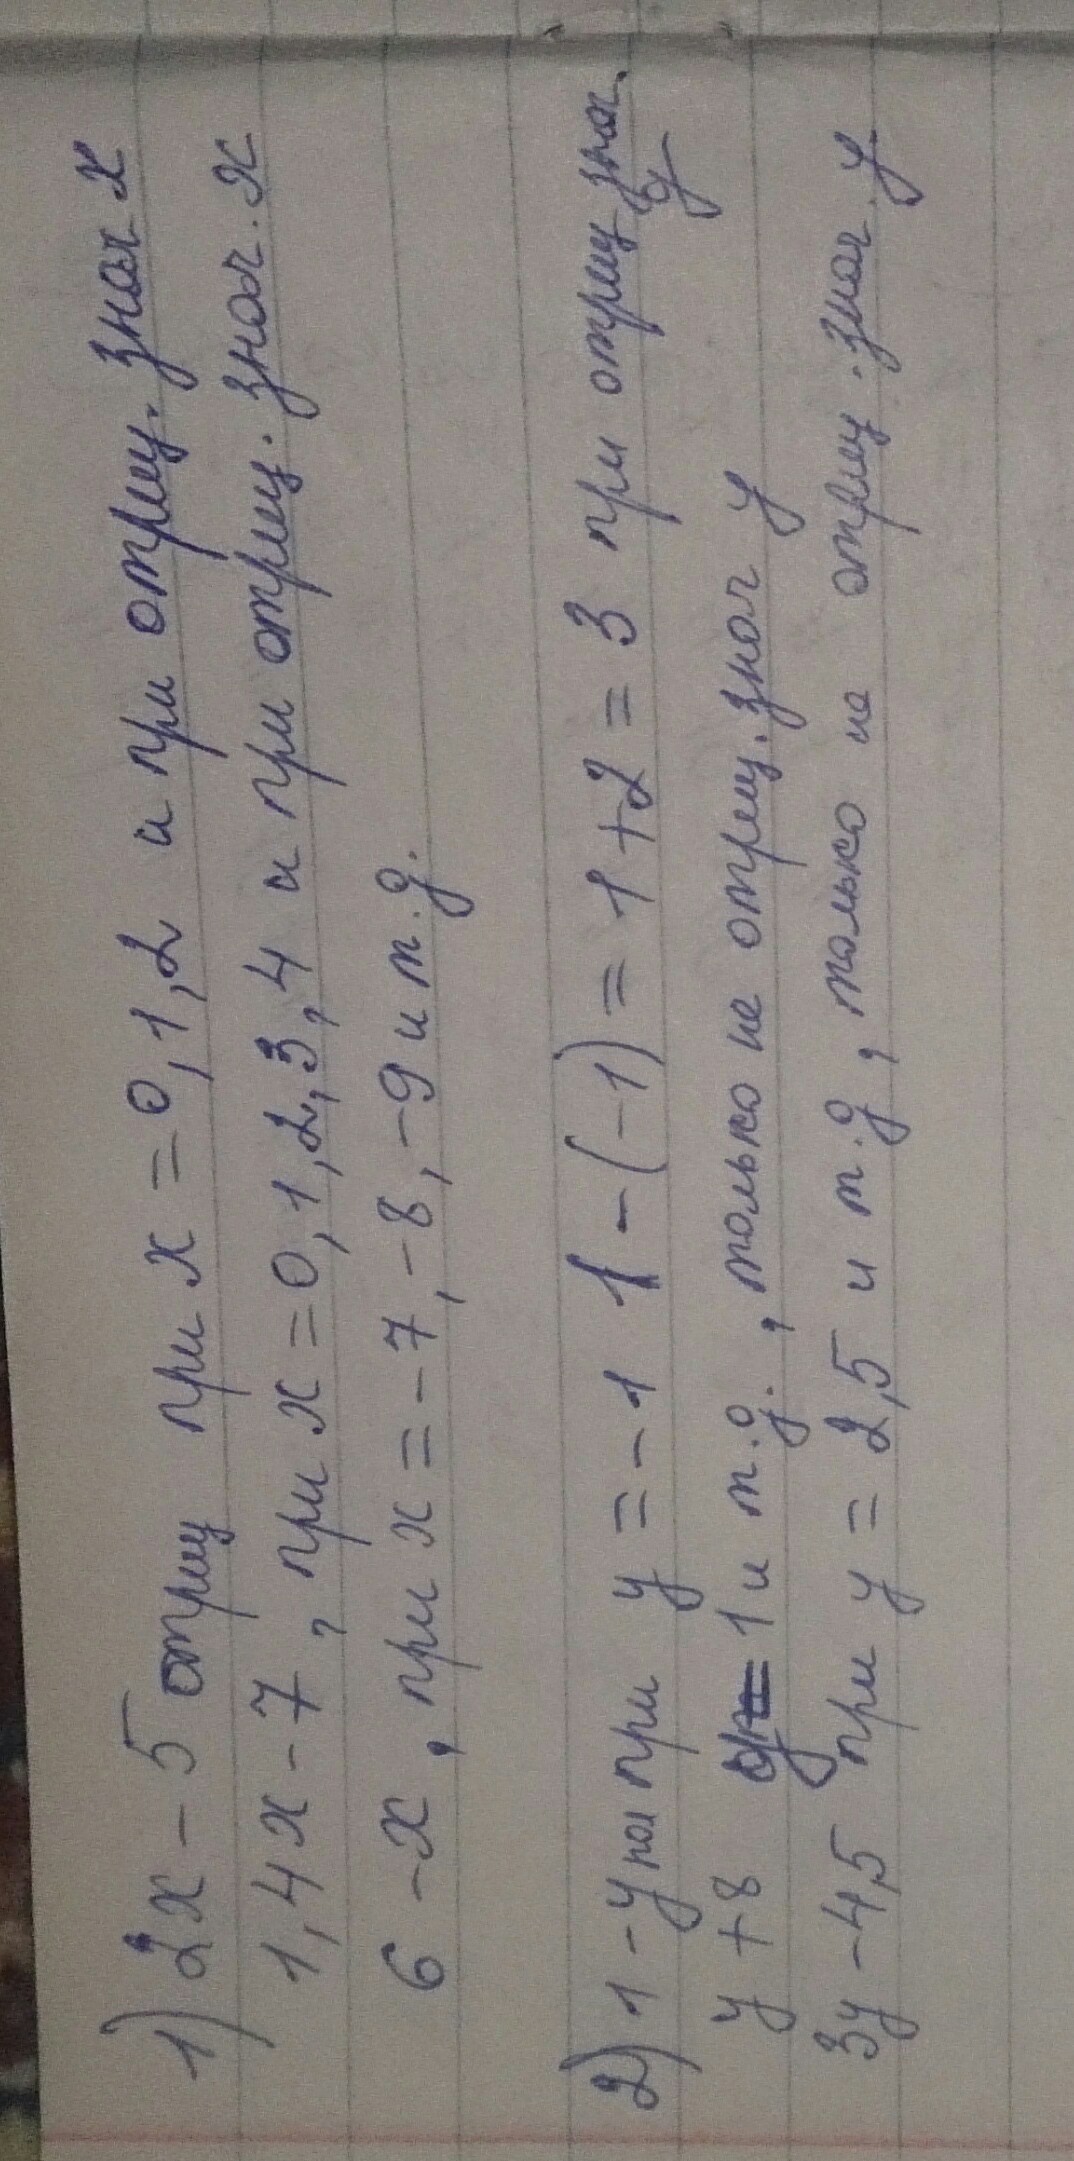 1) 2x - 5 отриц при x = 0, 1, 2 и при отриц. знач x
1,4x - 7, при x = 0, 1, 2, 3, 4 и при отриц. знач. x
6 - x, при x = -7, -8, -9 и т.д.
2) 1 - y пол при y = -1 1 - (-1) = 1 + 2 = 3 при отриц знач. y
y + 8 1 и т.д., только не отриц. знач y
3y - 4,5 при y = 2,5 и т.д, только не отриц. знач y